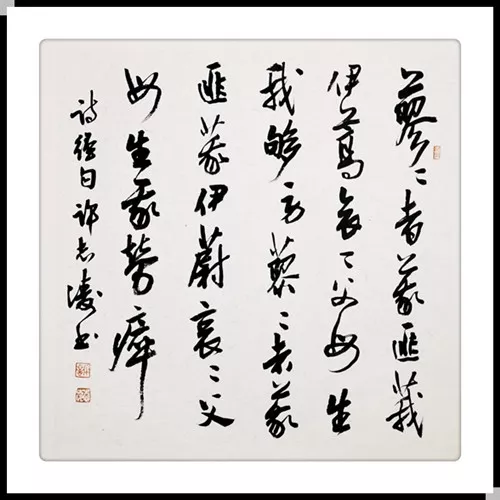 蓼〻者莪匪莪
伊蒿哀〻父母生
我劬劳蓼〻者莪
匪莪伊蔚哀〻父
母生我劳瘁
诗经曰许志涛书